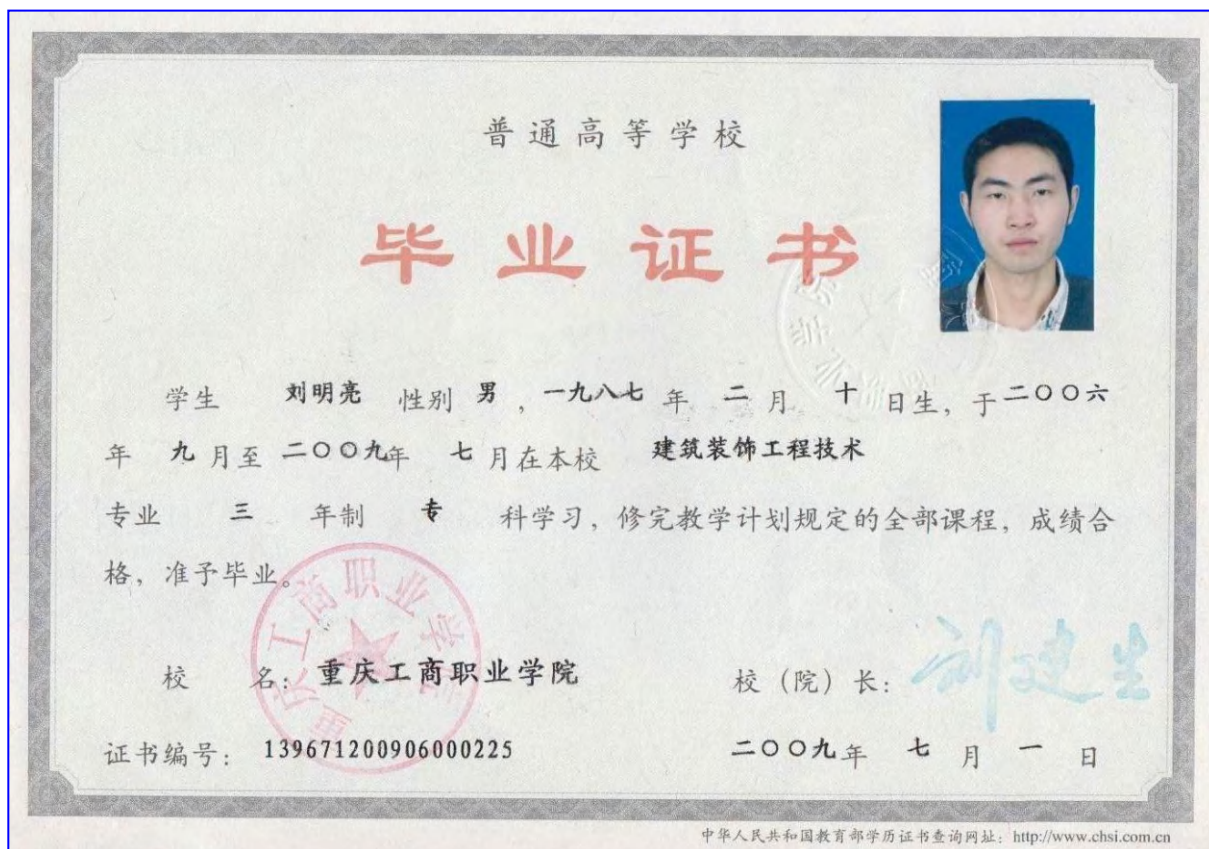 普通高等学校
毕业证书
学生 刘明亮 性别 男 ，一九八七 年 二 月 十 日生，于二〇〇六
年 九 月至 二〇〇九年 七 月在本校 建筑装饰工程技术
专业 三 年制 专 科学习，修完教学计划规定的全部课程，成绩合
格，准予毕业。
重庆工商职业学院
校 名：重庆工商职业学院
校（院）长：
证书编号：139671200906000225
二〇〇九年 七 月 一 日
中华人民共和国教育部学历证书查询网址：http://www.chsi.com.cn